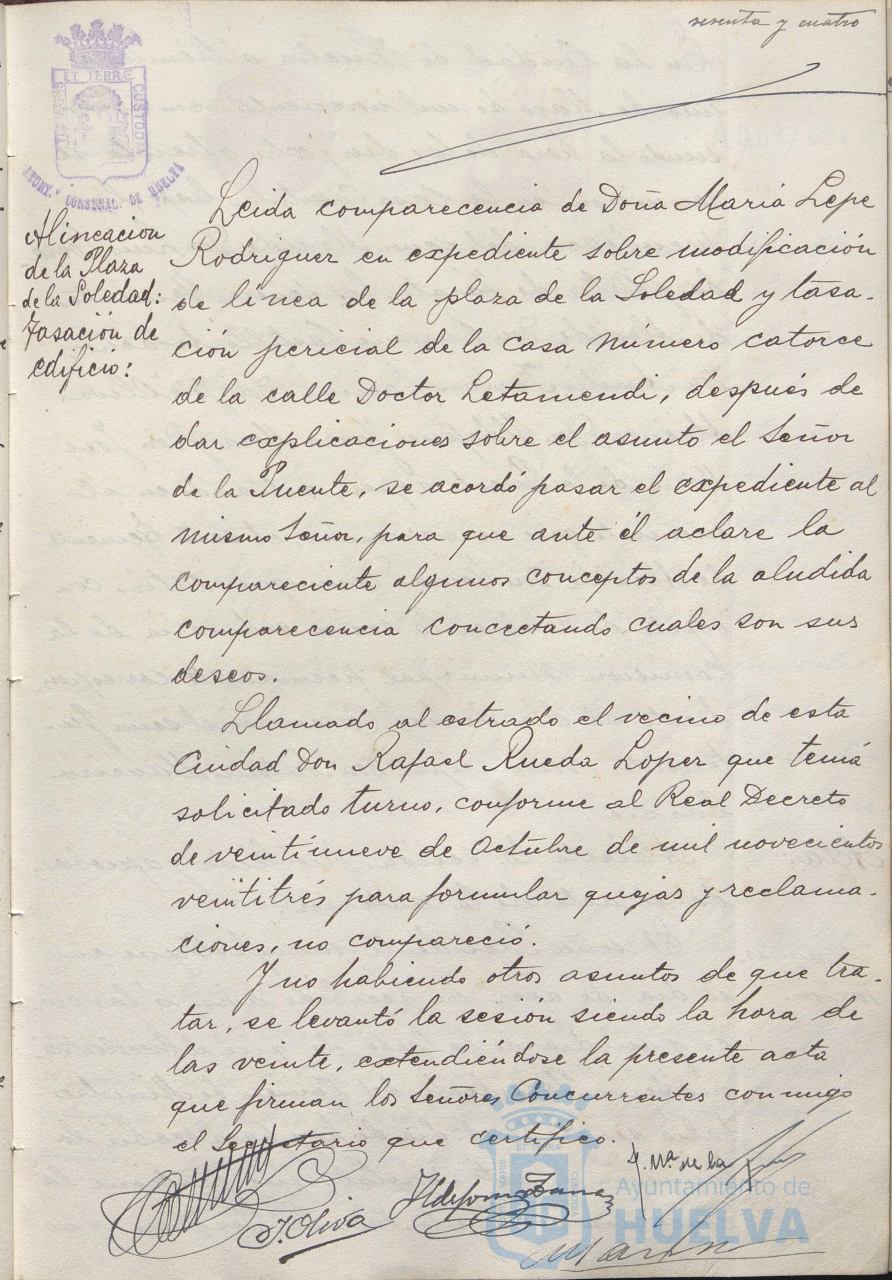 sesenta y cuatro
ET TERRÆ
CUSTODIA
AYUNT.º CONSTNAL. DE HUELVA
Alineacion
de la Plaza
de la Soledad:
tasación de
edificio:
Leida comparecencia de Doña María Lepe
Rodriguez en expediente sobre modificación
de línea de la plaza de la Soledad y tasa-
ción pericial de la casa número catorce
de la calle Doctor Letamendi, después de
dar explicaciones sobre el asunto el Señor
de la Puente, se acordó pasar el expediente al
mismo Señor, para que ante él aclare la
compareciente algunos conceptos de la aludida
comparecencia concretando cuales son sus
deseos.
Llamado al estrado el vecino de esta
Ciudad Don Rafael Rueda Lopez que tenía
solicitado turno, conforme al Real Decreto
de veintinueve de Octubre de mil novecientos
veintitrés para formular quejas y reclama-
ciones, no compareció.
Y no habiendo otros asuntos de que tra-
tar, se levantó la sesión siendo la hora de
las veinte, extendiéndose la presente acta
que firman los Señores Concurrentes conmigo
el Secretario que certifico.
J. Oliva
Ildefonso
Mª de la
Ayuntamiento de
HUELVA